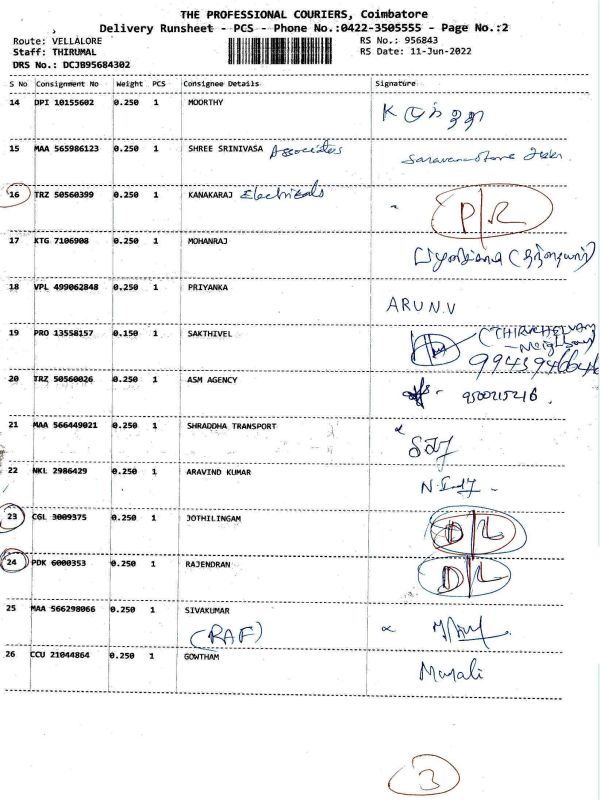 THE PROFESSIONAL COURIERS, Coimbatore
Delivery Runsheet - PCS - Phone No.:0422-3505555 - Page No.:2
Route: VELLALORE RS No.: 956843
Staff: THIRUMAL RS Date: 11-Jun-2022
DRS No.: DCJB95684302
S No Consignment No Weight PCS Consignee Details Signature
14 DPI 10155602 0.250 1 MOORTHY
15 MAA 565986123 0.250 1 SHREE SRINIVASA Associates
16 TRZ 50560399 0.250 1 KANAKARAJ Electricals P/R
17 KTG 7106908 0.250 1 MOHANRAJ
18 VPL 499062848 0.250 1 PRIYANKA ARUN.V
19 PRO 13558157 0.150 1 SAKTHIVEL
20 TRZ 50560026 0.250 1 ASM AGENCY 9500215216
21 MAA 566449021 0.250 1 SHRADDHA TRANSPORT
22 NKL 2986429 0.250 1 ARAVIND KUMAR
23 CGL 3009375 0.250 1 JOTHILINGAM D/L
24 PDK 6000353 0.250 1 RAJENDRAN D/L
25 MAA 566298066 0.250 1 SIVAKUMAR
(RAF)
26 CCU 21044864 0.250 1 GOWTHAM Murali
3